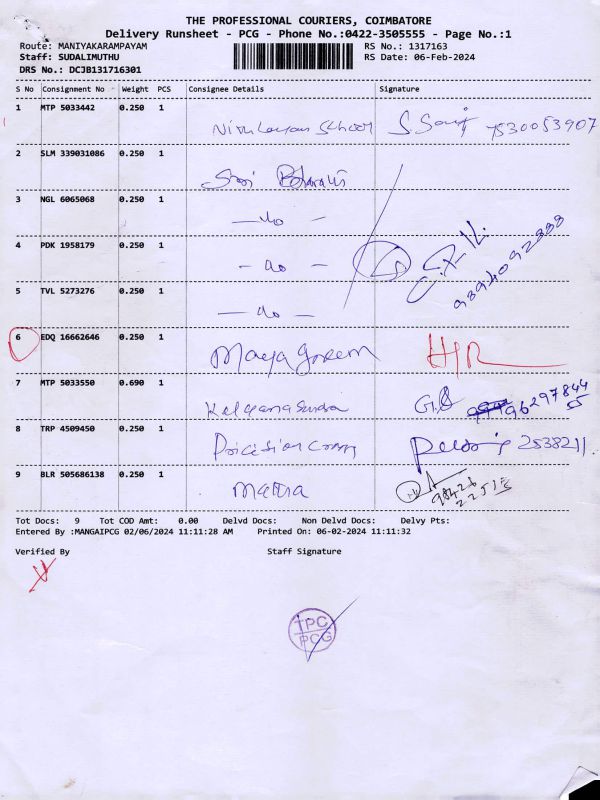 THE PROFESSIONAL COURIERS, COIMBATORE
Delivery Runsheet - PCG - Phone No.:0422-3505555 - Page No.:1
Route: MANIYAKARAMPAYAM RS No.: 1317163
Staff: SUDALIMUTHU RS Date: 06-Feb-2024
DRS No.: DCJB131716301
S No Consignment No Weight PCS Consignee Details Signature
1 MTP 5033442 0.250 1
School 7530053907
2 SLM 339031086 0.250 1
3 NGL 6065068 0.250 1
- do -
4 PDK 1958179 0.250 1
- do -
5 TVL 5273276 0.250 1
- do -
6 EDQ 16662646 0.250 1
HR
7 MTP 5033550 0.690 1
8 TRP 4509450 0.250 1
2538211
9 BLR 505686138 0.250 1
Tot Docs: 9 Tot COD Amt: 0.00 Delvd Docs: Non Delvd Docs: Delvy Pts:
Entered By :MANGAIPCG 02/06/2024 11:11:28 AM Printed On: 06-02-2024 11:11:32
Verified By Staff Signature
TPC
PCG